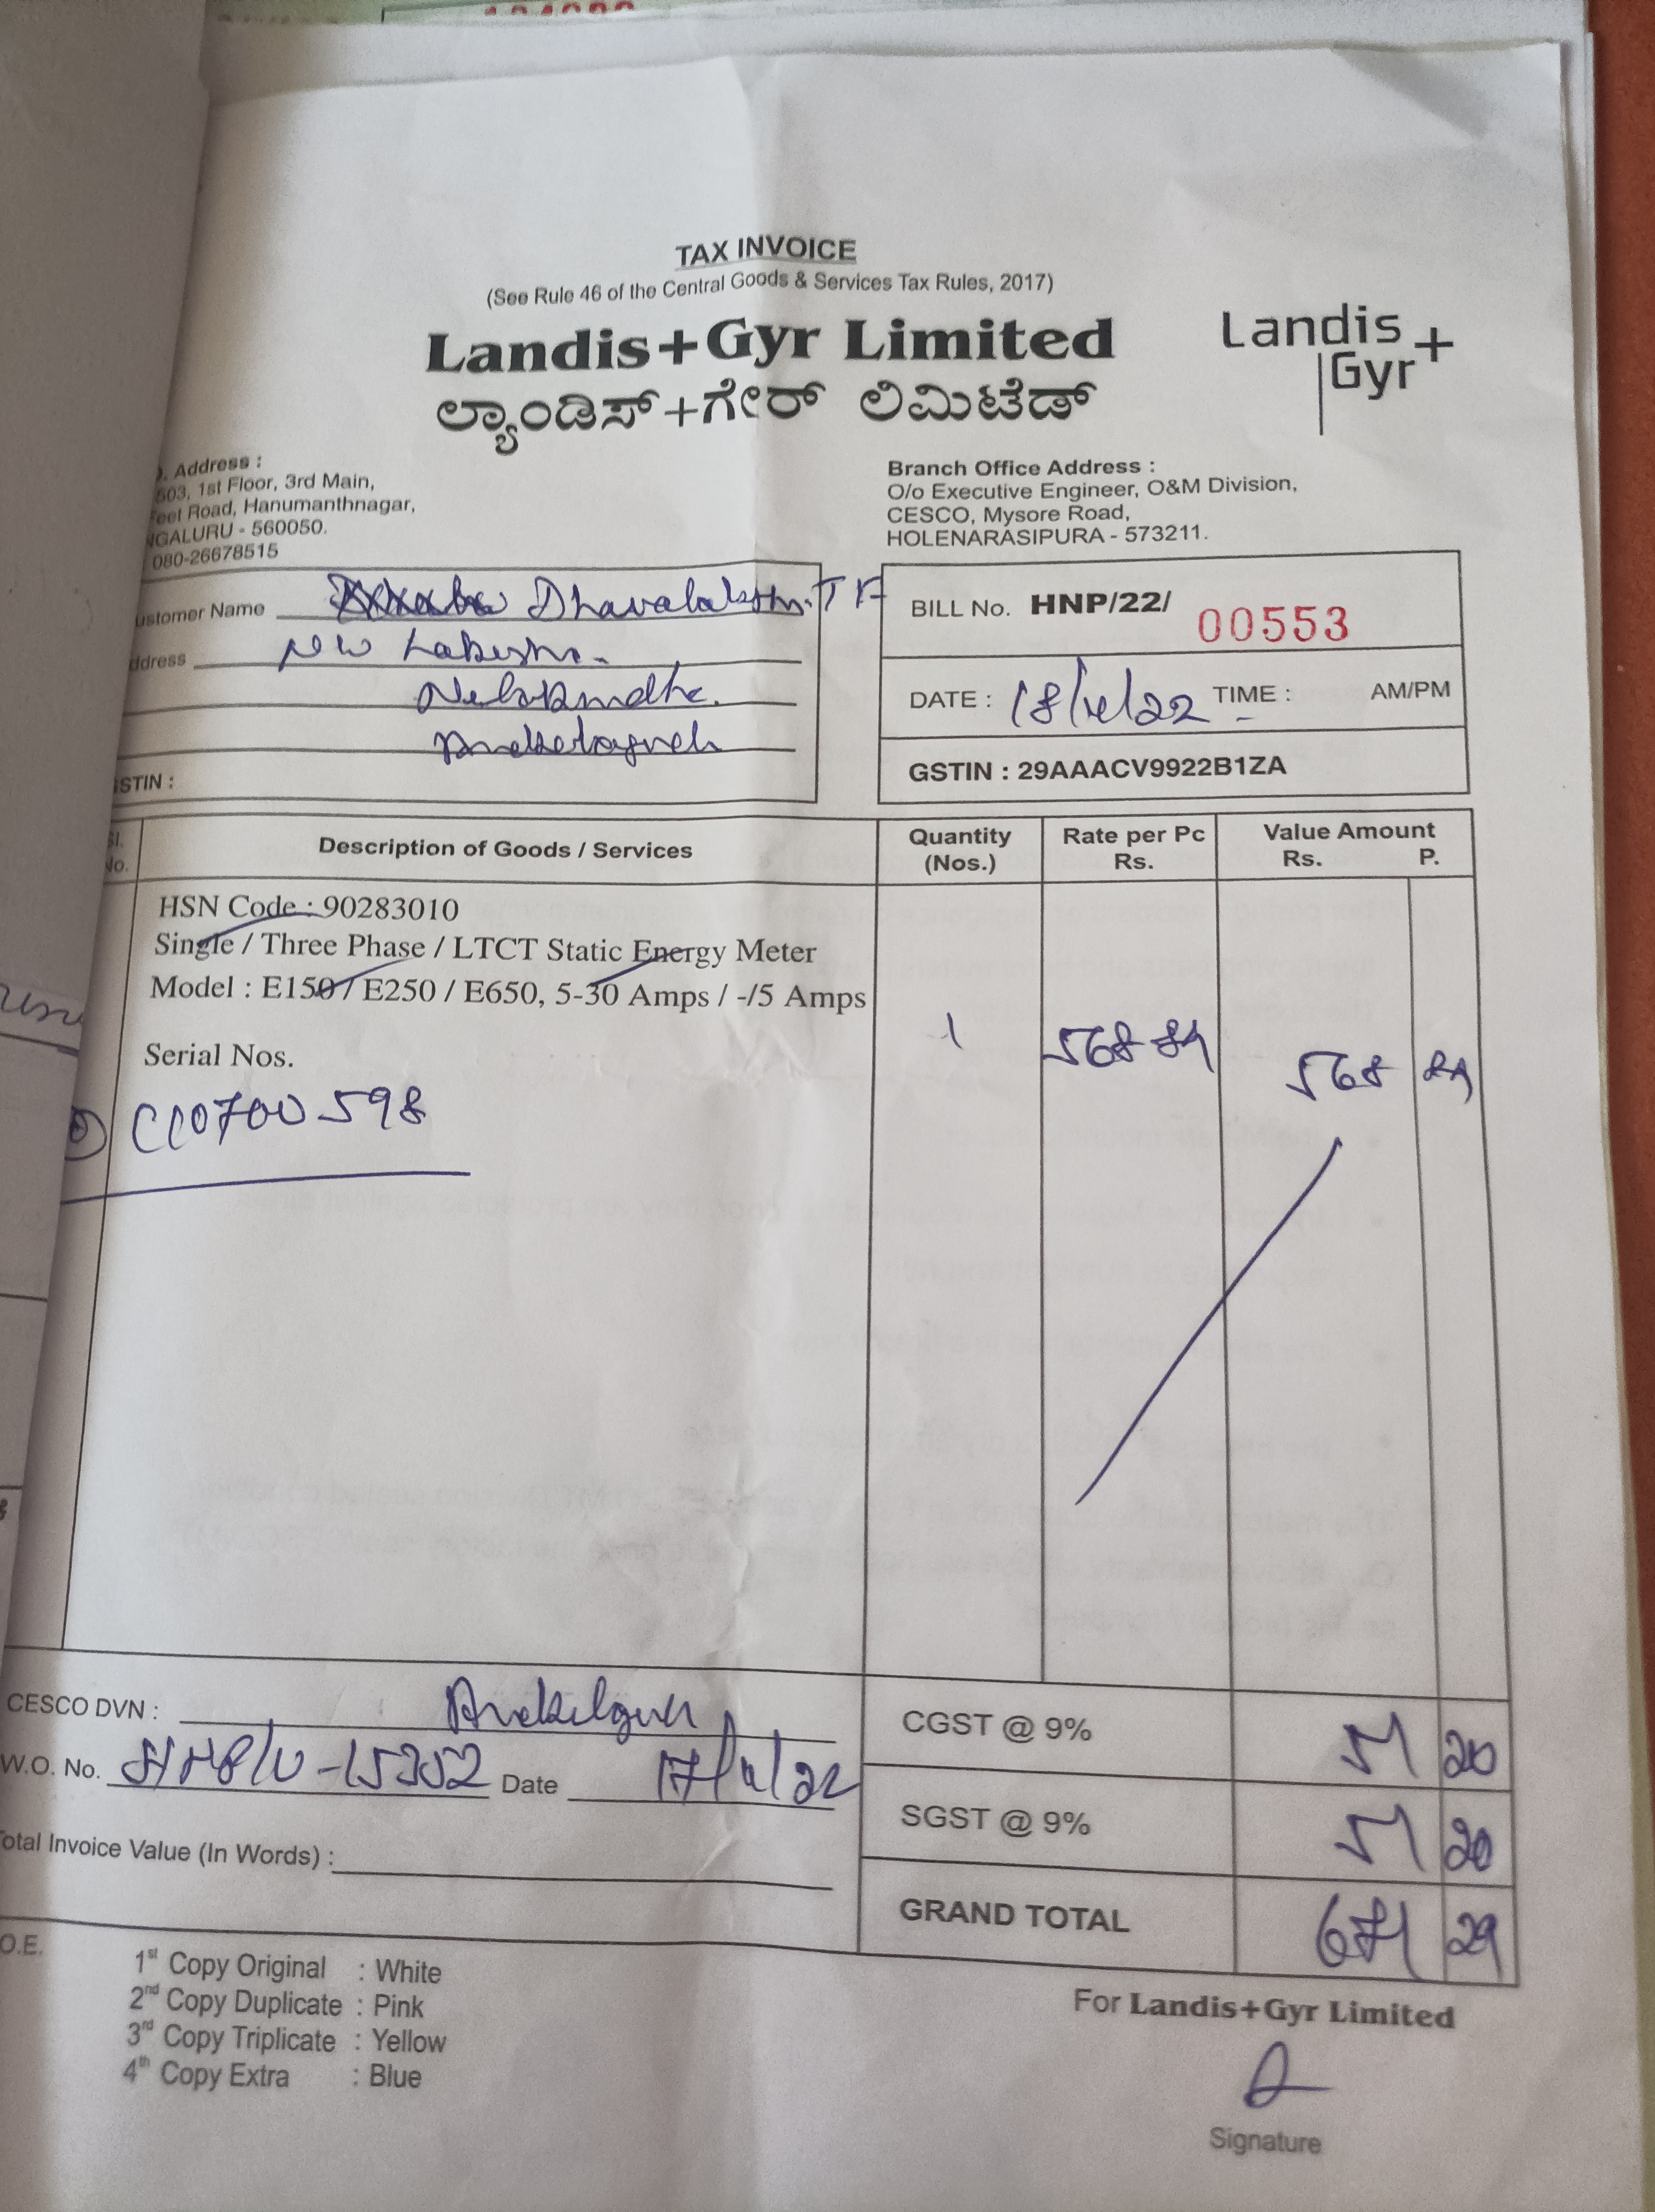 TAX INVOICE
(See Rule 46 of the Central Goods & Services Tax Rules, 2017)
Landis+Gyr Limited
ಲ್ಯಾಂಡಿಸ್+ಗೇರ್ ಲಿಮಿಟೆಡ್
Landis
Gyr+
. Address :
503, 1st Floor, 3rd Main,
Feet Road, Hanumanthnagar,
NGALURU - 560050.
080-26678515
Branch Office Address :
O/o Executive Engineer, O&M Division,
CESCO, Mysore Road,
HOLENARASIPURA - 573211.
ustomer Name
ddress
STIN :
BILL No. HNP/22/ 00553
DATE : TIME : AM/PM
GSTIN : 29AAACV9922B1ZA
Sl. No. Description of Goods / Services Quantity (Nos.) Rate per Pc Rs. Value Amount Rs. P.
HSN Code : 90283010
Single / Three Phase / LTCT Static Energy Meter
Model : E150 / E250 / E650, 5-30 Amps / -/5 Amps
1 568 84 568 84
Serial Nos.
CESCO DVN :
W.O. No. Date
otal Invoice Value (In Words) :
CGST @ 9% 51 20
SGST @ 9% 51 20
GRAND TOTAL 671 29
O.E.
1st Copy Original : White
2nd Copy Duplicate : Pink
3rd Copy Triplicate : Yellow
4th Copy Extra : Blue
For Landis+Gyr Limited
Signature